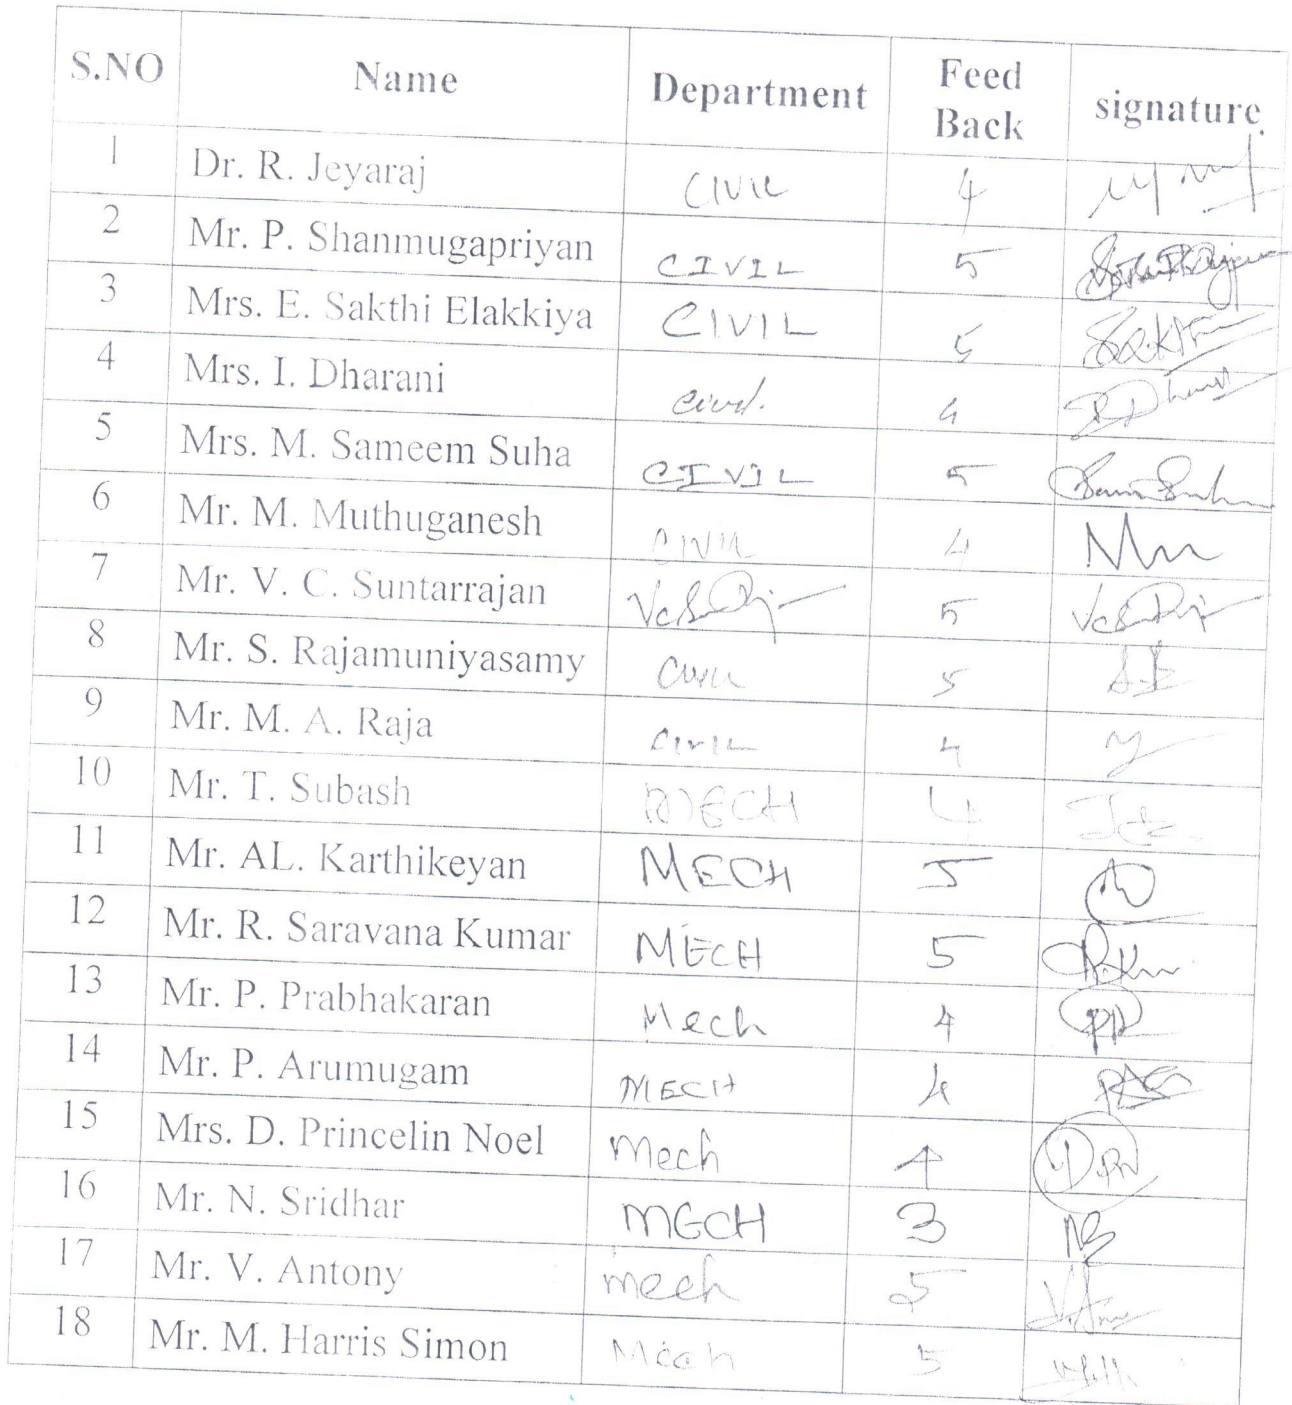 S.NO Name Department Feed Back signature
1 Dr. R. Jeyaraj CIVIL 4
2 Mr. P. Shanmugapriyan CIVIL 5
3 Mrs. E. Sakthi Elakkiya CIVIL 5 Sakthi
4 Mrs. I. Dharani Civil. 4 I. Dharani
5 Mrs. M. Sameem Suha CIVIL 5
6 Mr. M. Muthuganesh CIVIL 4
7 Mr. V. C. Suntarrajan 5
8 Mr. S. Rajamuniyasamy Civil 5
9 Mr. M. A. Raja CIVIL 4
10 Mr. T. Subash MECH 4
11 Mr. AL. Karthikeyan MECH 5
12 Mr. R. Saravana Kumar MECH 5
13 Mr. P. Prabhakaran Mech 4
14 Mr. P. Arumugam MECH 4
15 Mrs. D. Princelin Noel Mech 4
16 Mr. N. Sridhar MECH 3
17 Mr. V. Antony mech 5
18 Mr. M. Harris Simon Mech 5